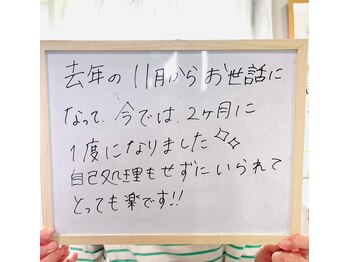 去年の11月からお世話に
なって、今では、2ヶ月に
1度になりました✨
自己処理もせずにいられて
とっても楽です!!